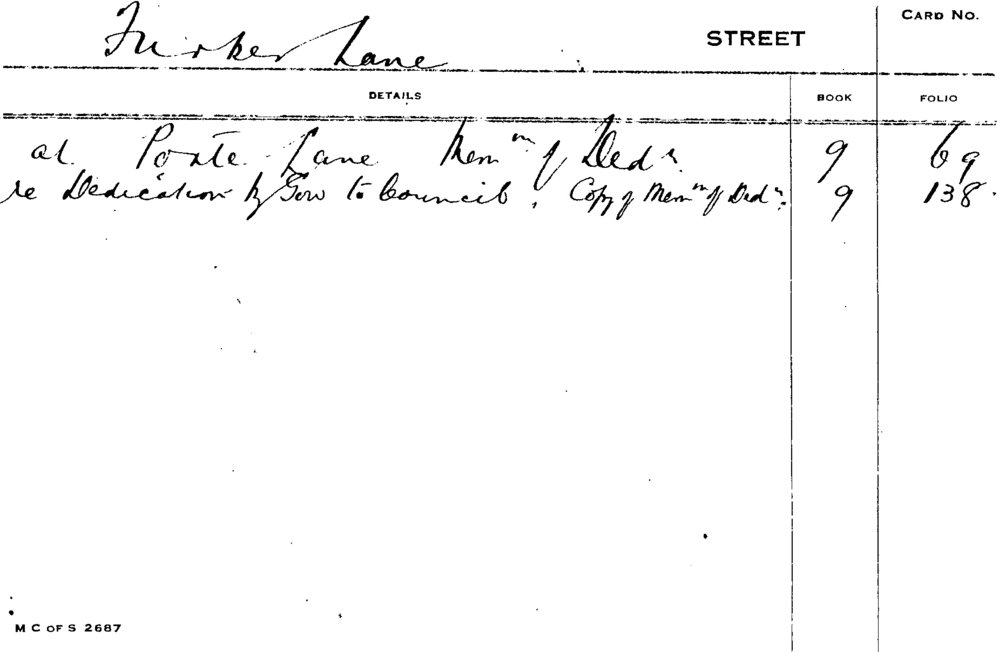 Lane STREET CARD NO.
DETAILS BOOK FOLIO
at Poate Lane Mem^m of Ded^n. 9 69
re Dedication by Gov to Council. Copy of Mem^m of Ded^n. 9 138
M C OF S 2687